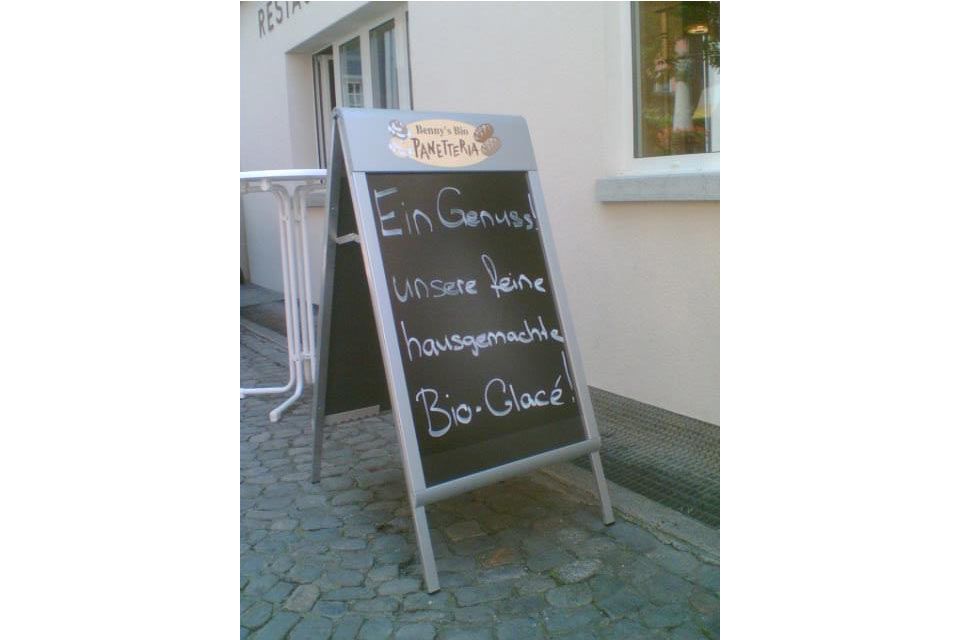 RESTAU
Benny's Bio
PANETTERIA
Ein Genuss!
unsere feine
hausgemachte
Bio-Glacé!